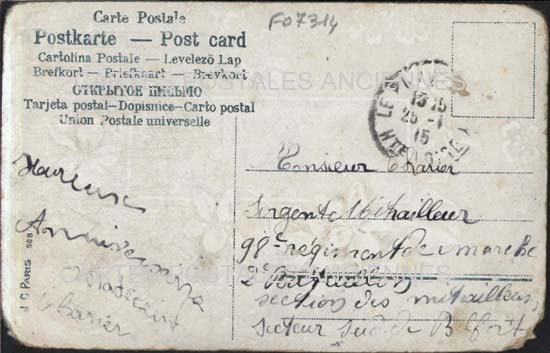 Carte Postale
F07314
Postkarte — Post card
Cartolina Postale — Levelező Lap
Brefkort — Briefkaart — Brevkort
ОТКРЫТОЕ ПИСЬМО
Tarjeta postal—Dopisnice—Carto postal
Union Postale universelle
13 15
25 - 1
15
CARTES POSTALES ANCIENNES
Heureux
Anniversaire
Charier
J C PARIS 508
Monsieur Charier
Sergent Mitrailleur
98e régiment de marche
2e Bataillon
section des mitrailleurs
secteur sud de Belfort